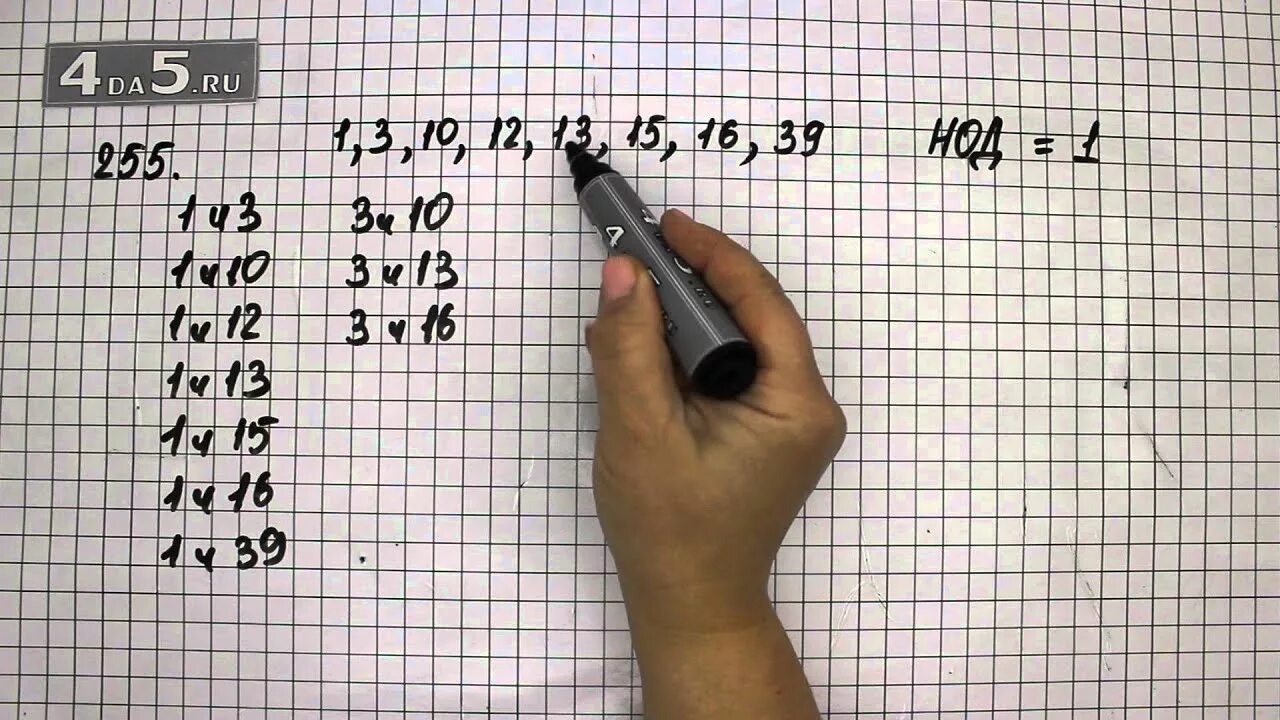 4DA5.RU
1, 3, 10, 12, 13, 15, 16, 39
НОД = 1
255.
1 и 3
3 и 10
1 и 10
3 и 13
1 и 12
3 и 16
1 и 13
1 и 15
1 и 16
1 и 39